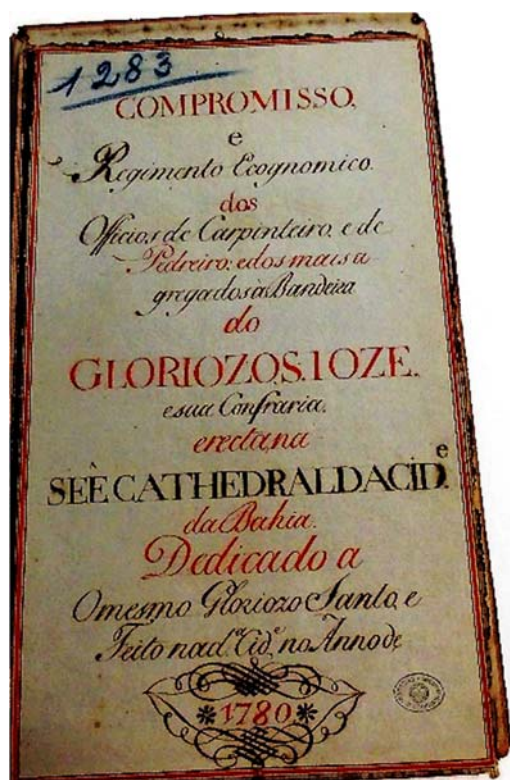 1283
COMPROMISSO,
e
Regimento Ecognomico.
dos
Officios de Carpinteiro, e de
Pedreiro: e dos mais a
gregados à Bandeira
do
GLORIOZO.S.IOZE.
e sua Confraria.
erecta, na
SEÊ CATHEDRAL DA CID.e
da Bahia.
Dedicado a
O mesmo Gloriozo Santo, e
Feito na d.a Cid.e no Anno de
*1780*